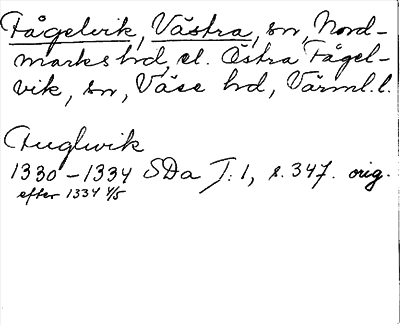 Fågelvik, Västra, sn, Nord-
marks hd, el. Östra Fågel-
vik, sn, Väse hd, Värml.l.
Fuglwik
1330-1334 SDa I:1, s. 347. orig.
efter 1334 4/5